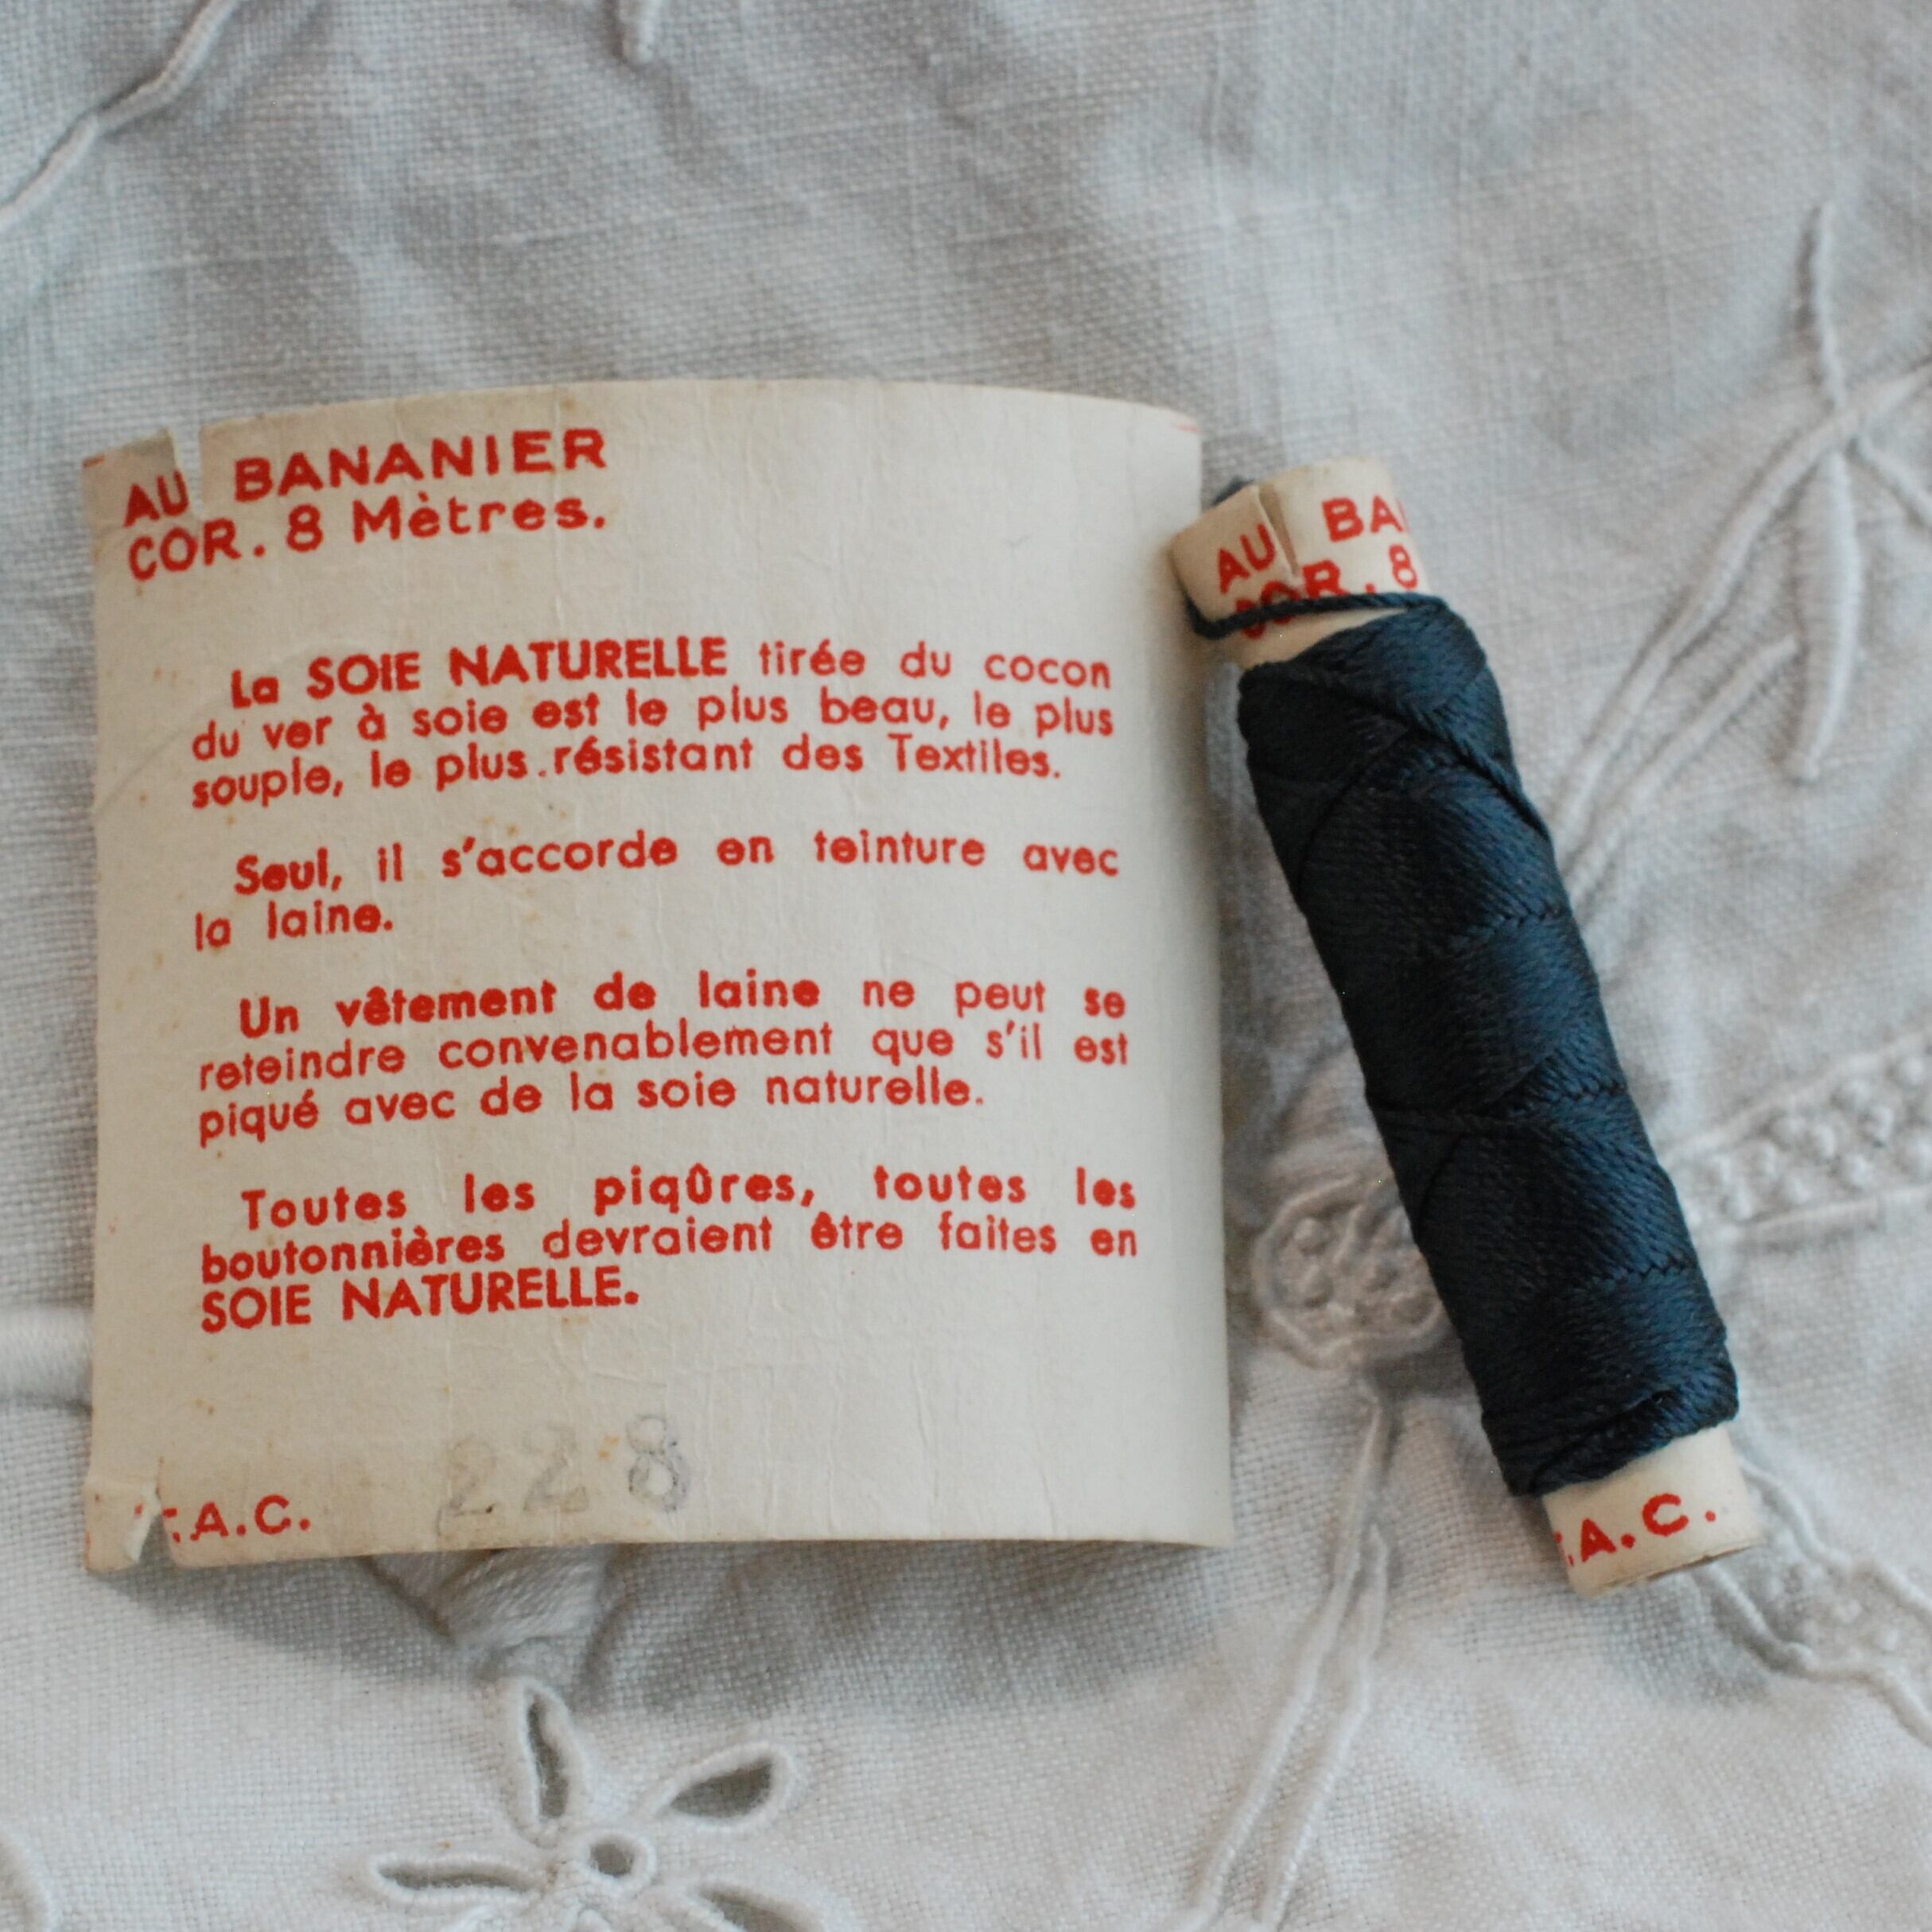 AU BANANIER
COR. 8 Mètres.
La SOIE NATURELLE tirée du cocon
du ver à soie est le plus beau, le plus
souple, le plus résistant des Textiles.
Seul, il s'accorde en teinture avec
la laine.
Un vêtement de laine ne peut se
reteindre convenablement que s'il est
piqué avec de la soie naturelle.
Toutes les piqûres, toutes les
boutonnières devraient être faites en
SOIE NATURELLE.
228
.A.C.
AU BA
COR. 8
.A.C.